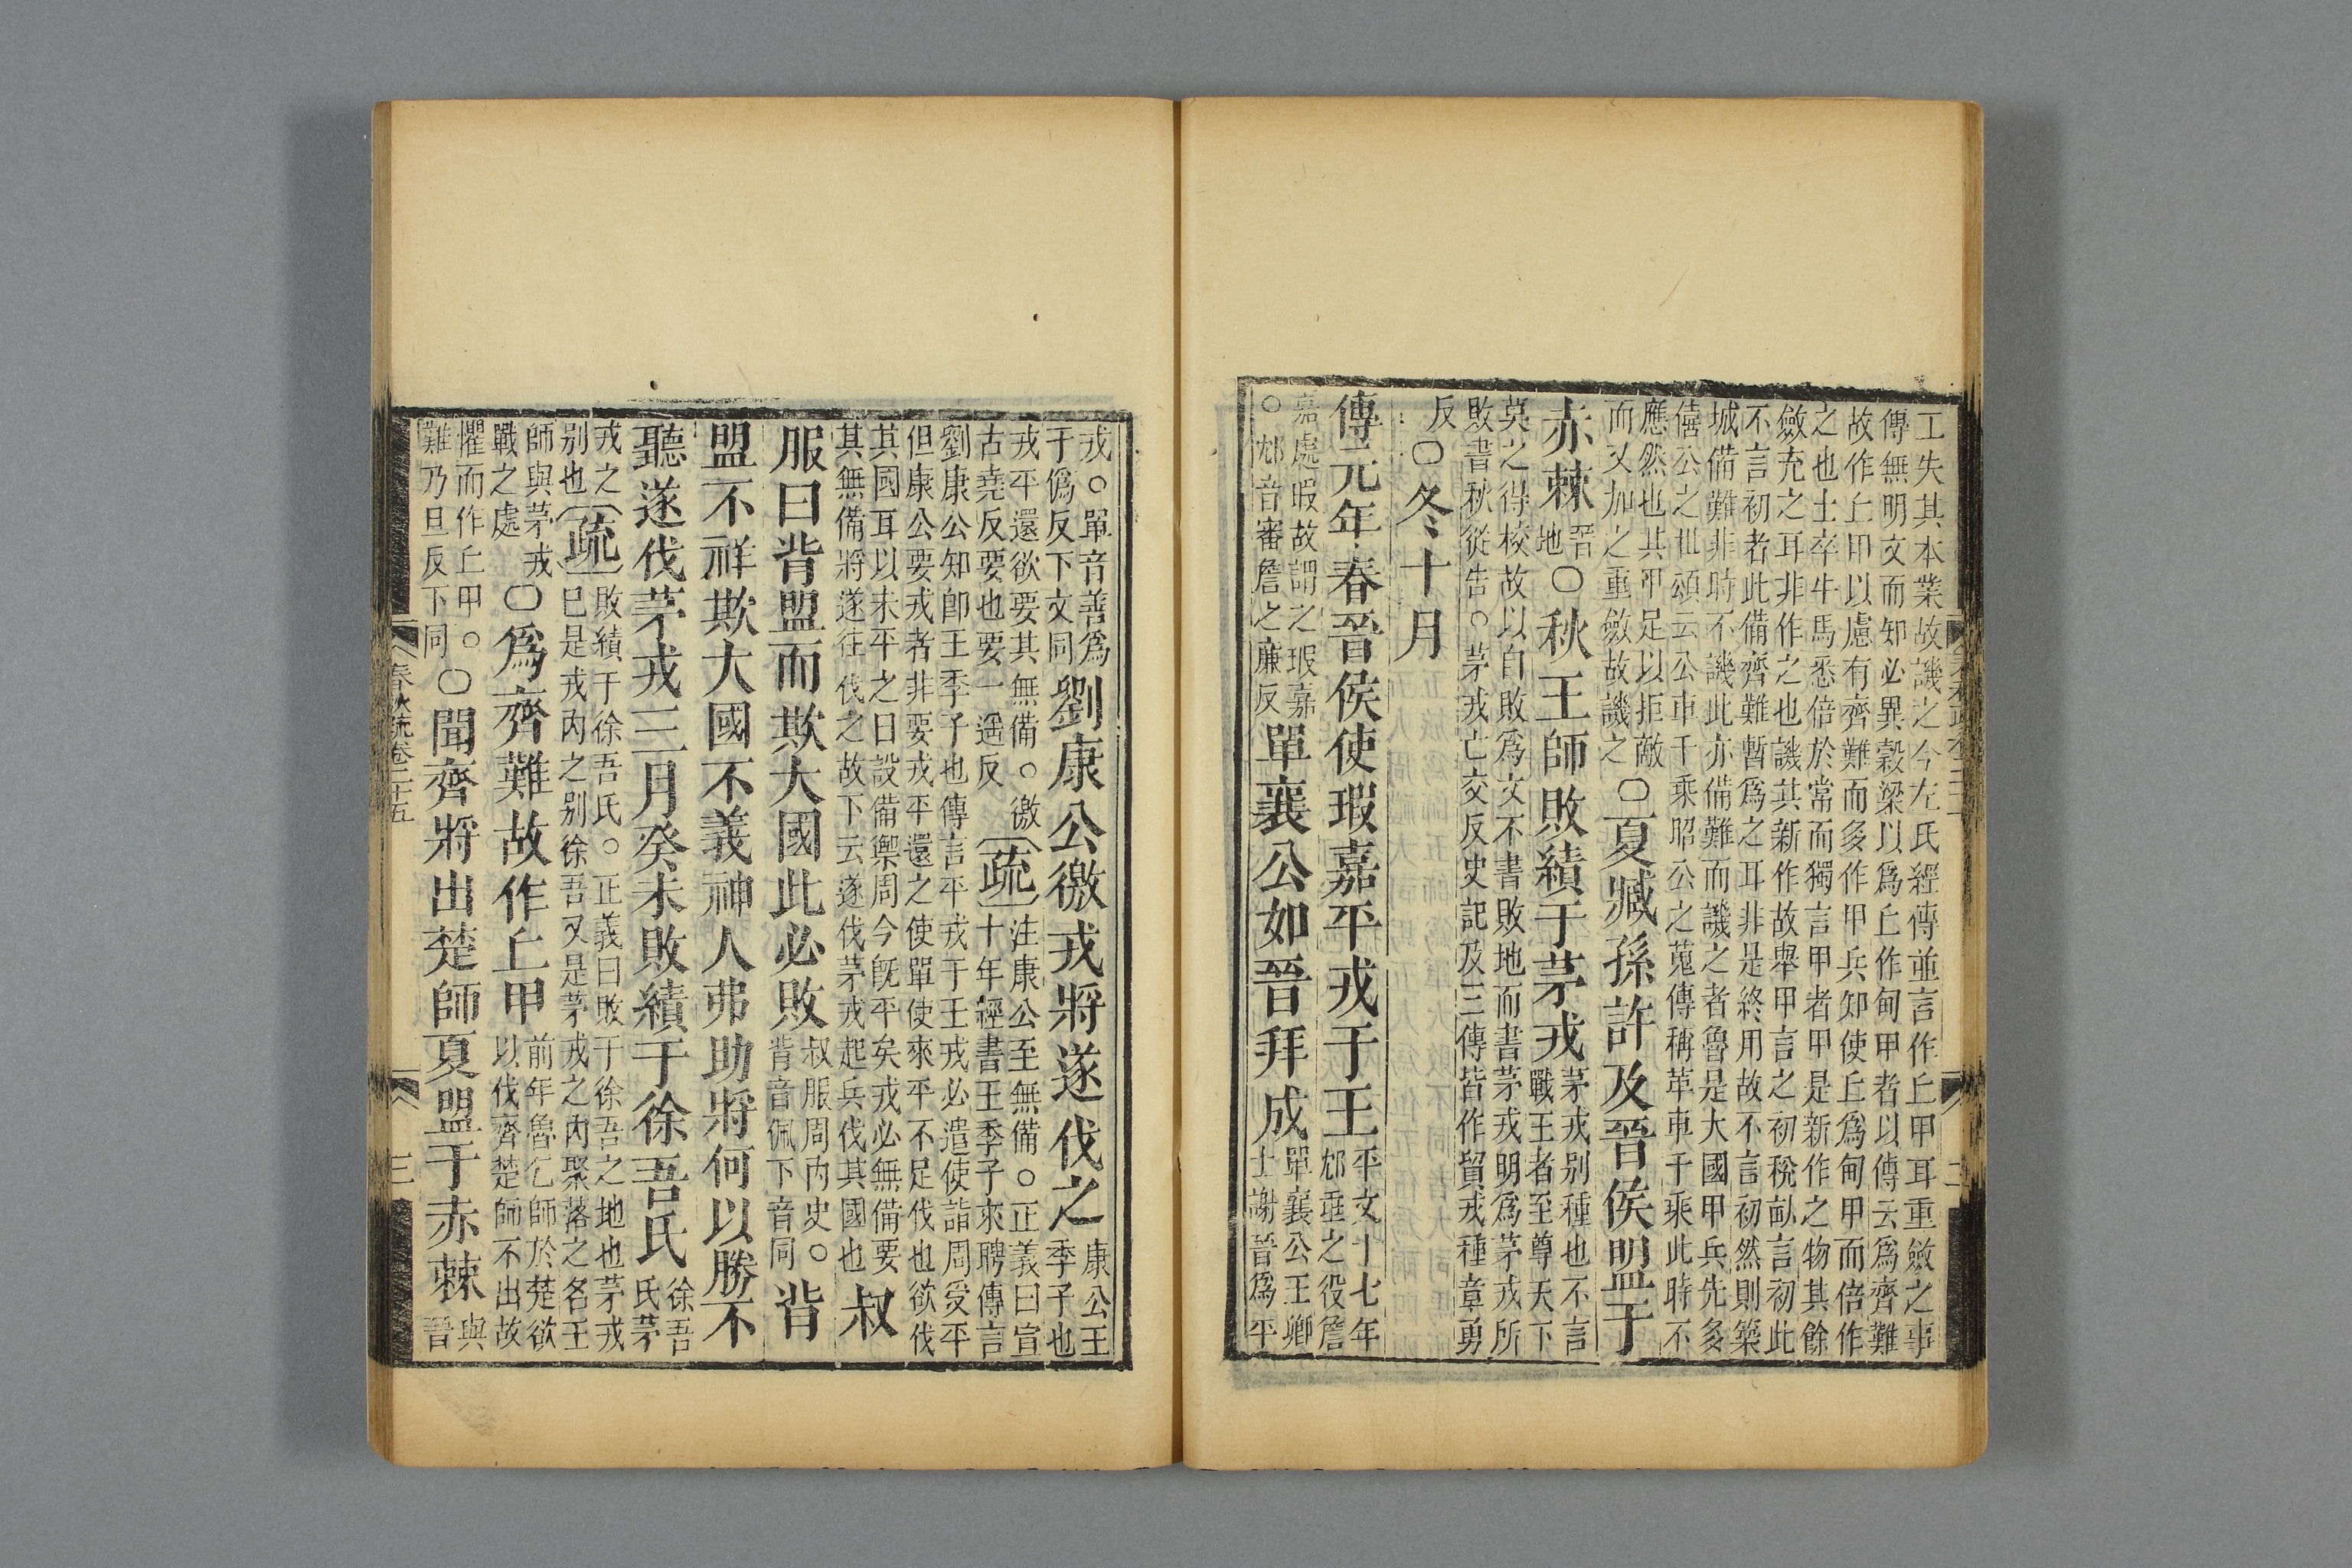 工失其本業故譏之今左氏經傳並言作丘甲耳重斂之事
傳無明文而知必異穀梁以爲丘作甸甲者以傳云爲齊難
故作丘甲以慮有齊難而多作甲兵知使丘爲甸甲而倍作
之也士卒牛馬悉倍於常而獨言甲者甲是新作之物其餘
斂充之耳非作之也譏其新作故舉甲言之初稅畝言初此
不言初者此備齊難暫爲之耳非是終用故不言初然則築
城備難非時不譏此亦備難而譏之者魯是大國甲兵先多
僖公之世頌云公車千乘昭公之蒐傳稱革車千乘此時不
應然也其甲足以拒敵
而又加之重斂故譏之
〇夏臧孫許及晉侯盟于
赤棘
晉
地
〇秋王師敗績于茅戎
茅戎別種也不言
戰王者至尊天下
莫之得校故以自敗爲文不書敗地而書茅戎明爲茅戎所
敗書秋從告。茅戎亡交反史記及三傳皆作貿戎種章勇
反
〇冬十月
傳元年春晉侯使瑕嘉平戎于王
平文十七年
邥垂之役詹
嘉處瑕故謂之瑕嘉
。邥音審詹之廉反
單襄公如晉拜成
單襄公王卿
士謝晉爲平
戎。單音善爲
于僞反下文同
劉康公徼戎將遂伐之
康公王
季子也
戎平還欲要其無備。徼
古堯反要也要一遥反
疏
注康公至無備。正義曰宣
十年經書王季子來聘傳言
劉康公知卽王季子也傳言平戎于王戎必遣使詣周受平
但康公要戎者非要戎平還之使單使來平不足伐也欲伐
其國耳以未平之日設備禦周今旣平矣戎必無備要
其無備將遂往伐之故下云遂伐茅戎起兵伐其國也
叔
服曰背盟而欺大國此必敗
叔服周内史。
背音佩下音同
背
盟不祥欺大國不義神人弗助將何以勝不
聽遂伐茅戎三月癸未敗績于徐吾氏
徐吾
氏茅
戎之
別也
疏
敗績于徐吾氏。正義曰敗于徐吾之地也茅戎
已是戎内之別徐吾又是茅戎之内聚落之名王
師與茅戎
戰之處
〇爲齊難故作丘甲
前年魯乞師於楚欲
以伐齊楚師不出故
懼而作丘甲。
難乃旦反下同
〇聞齊將出楚師夏盟于赤棘
與
晉
春秋疏卷二十五
三